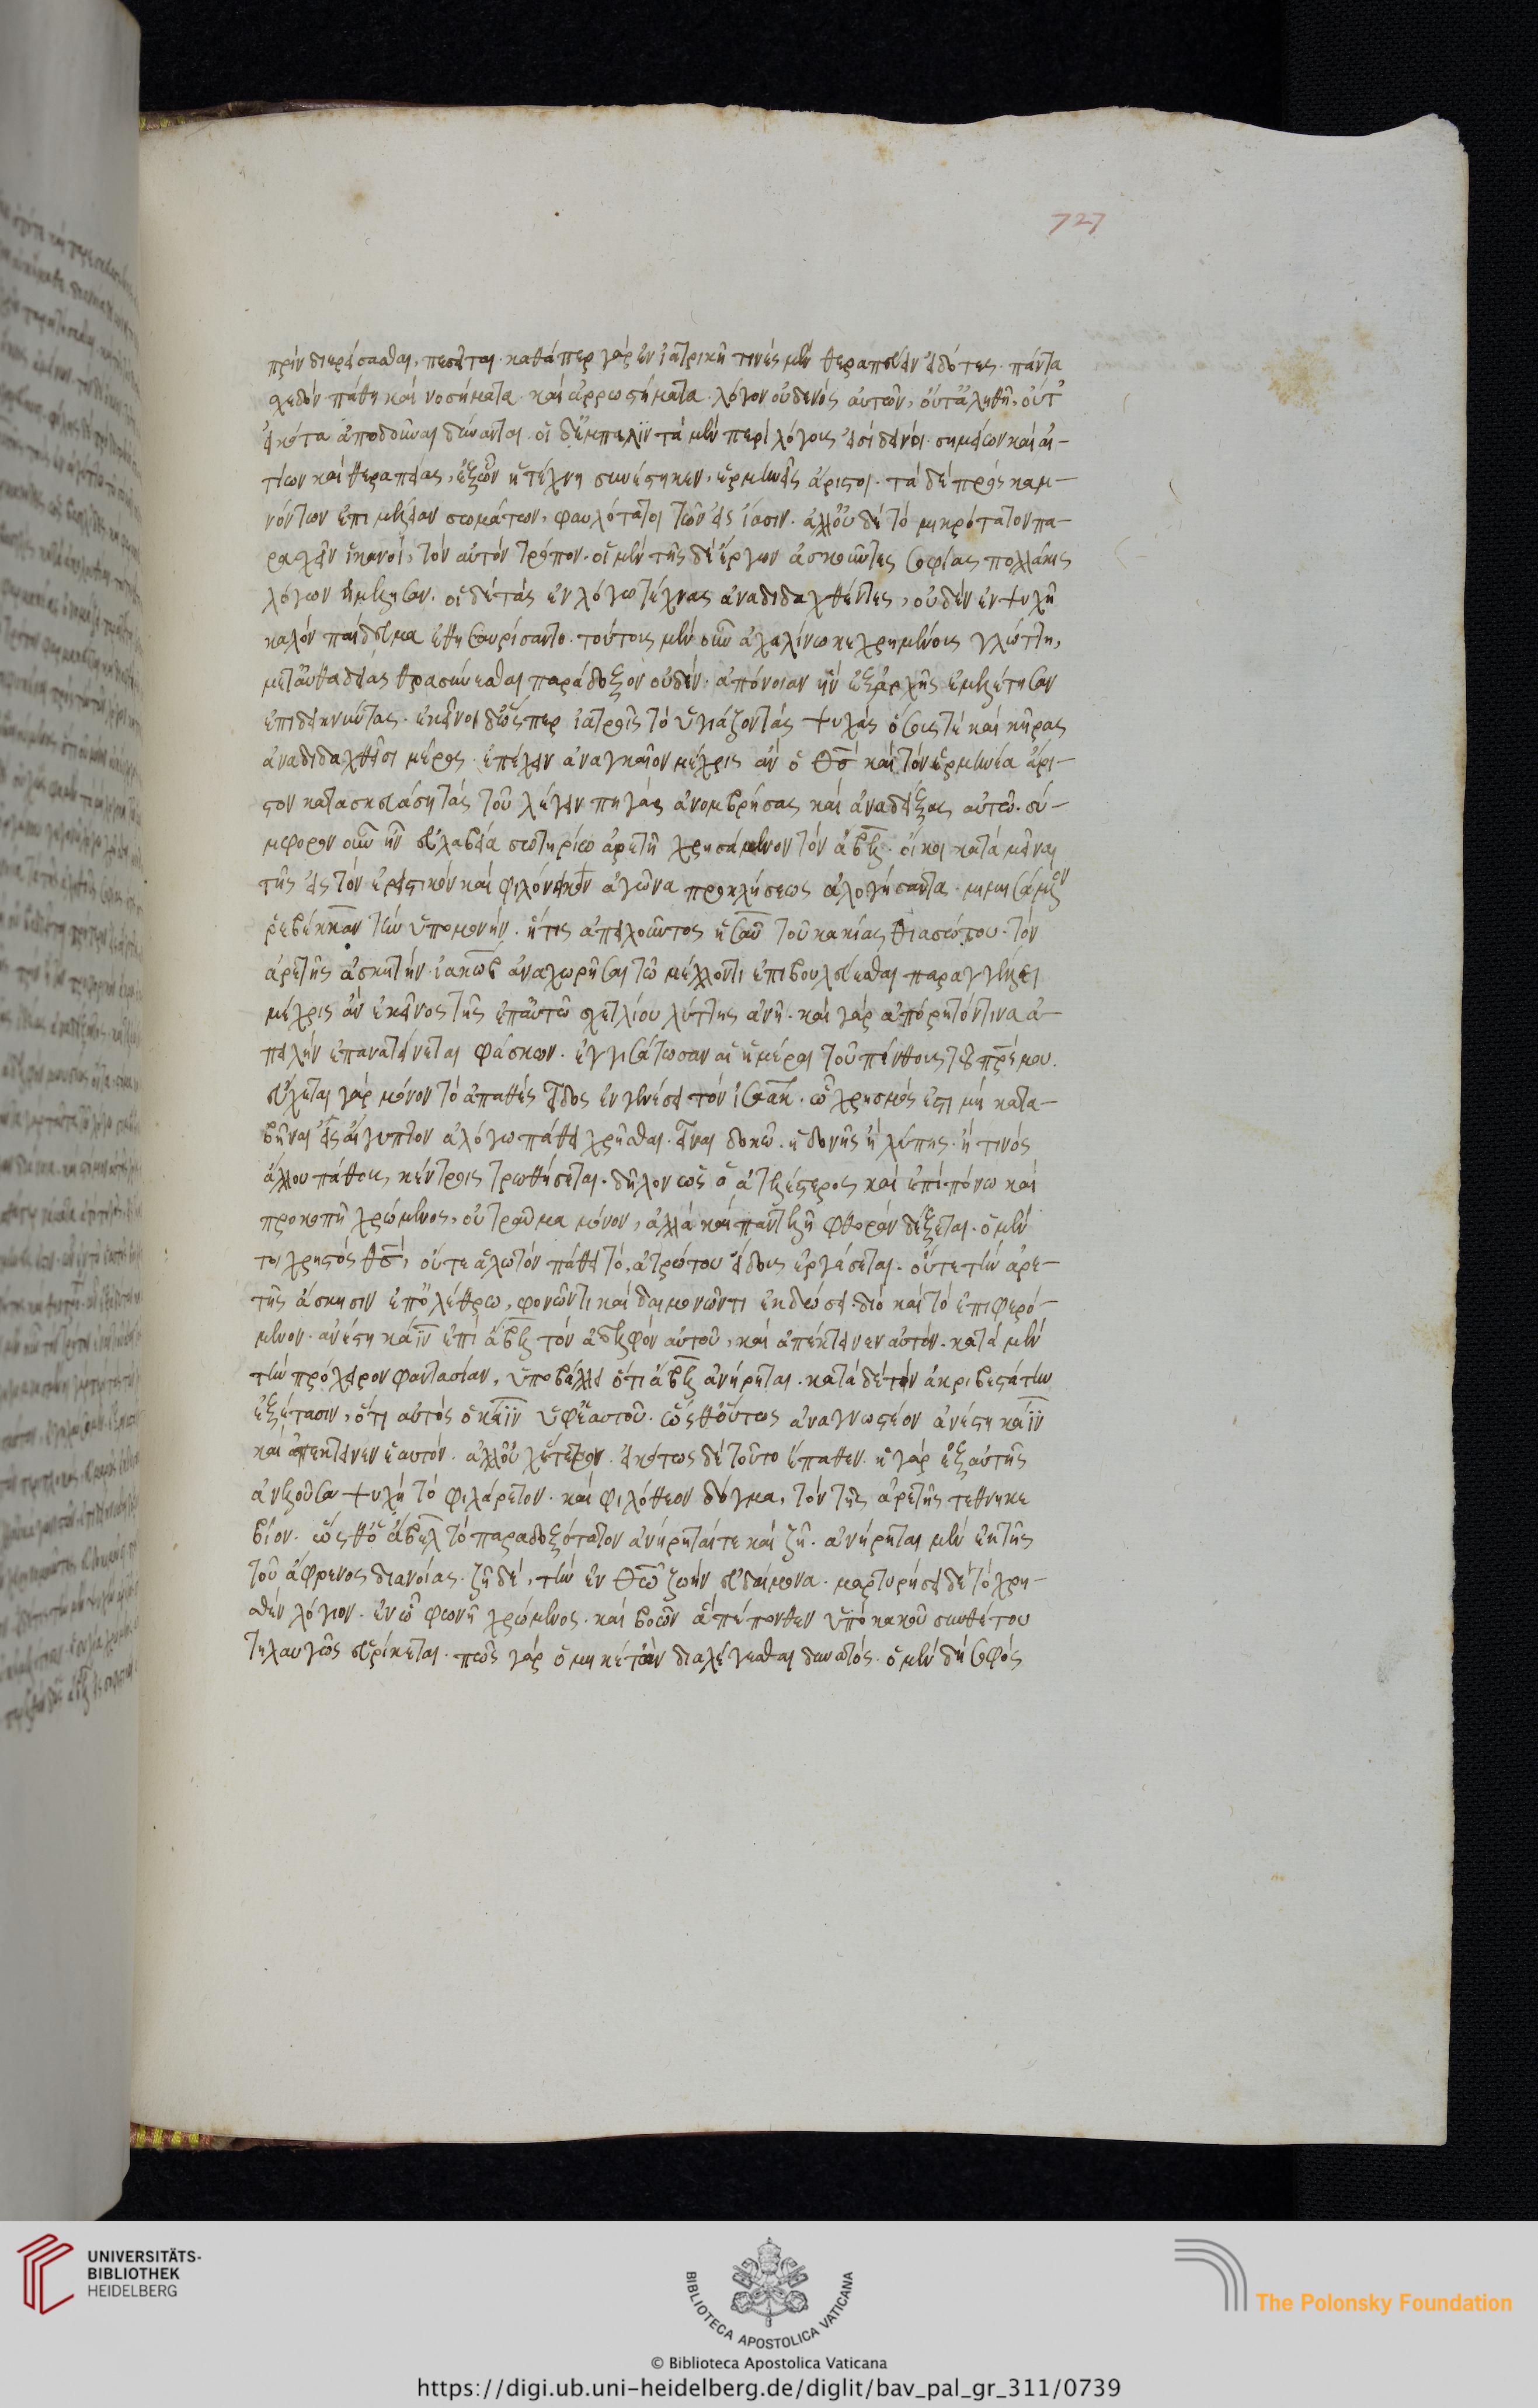 727
πρὶν διερείσασθαι, πεσεῖται· καθάπερ γὰρ ἐν ἰατρικῆ τινὲς μὲν θεραπεύειν εἰδότες· πάντα
σχεδὸν πάθη καὶ νοσήματα· καὶ ἀρρωστήματα· λόγον οὐδενὸς αὐτῶν, οὔτ' ἀληθῆ, οὔτ'
εἰκότα ἀποδοῦναι δύνανται· οἱ δ' ἔμπαλιν τὰ μὲν περὶ λόγους εἰσὶ δεινοί· σημείων καὶ αἰ-
τίων καὶ θεραπείας, ἐξ ὧν ἡ τέχνη συνέστηκεν, ἑρμηνεῖς ἄριστοι· τὰ δὲ πρὸς καμ-
νόντων ἐπιμέλειαν σωμάτων, φαυλότατοι τῶν εἰς ἴασιν· ἀλλ' οὐδὲ τὸ μικρότατον πα-
ρασχεῖν ἱκανοί, τὸν αὐτὸν τρόπον· οἱ μὲν τῆς δι' ἔργων ἀσκοῦντες σοφίας πολλάκις
λόγων ἠμέλησαν· οἱ δὲ τὰς ἐν λόγω τέχνας ἀναδιδαχθέντες, οὐδὲν ἐν ψυχῆ
καλὸν παίδευμα ἐθησαυρίσαντο· τούτοις μὲν οὖν ἀχαλίνω κεχρημένοις γλώττη,
μετ' αὐθαδείας θρασύνεσθαι παράδοξον οὐδέν· ἀπόνοιαν ἣν ἐξ ἀρχῆς ἐμελέτησαν
ἐπιδεικνύντας· ἐκείνοι δ' ὥσπερ ἰατροῖς τὸ ὑγιάζον τὰς ψυχὰς νόσους τὲ καὶ κῆρας
ἀναδιδαχθεῖσι μέρος· ἐπέχειν ἀναγκαῖον μέχρις ἂν ὁ θσ καὶ τὸν ἑρμηνέα ἄρι-
στον κατασκευάση τὰς τοῦ λέγειν πηγὰς ἀνομβρήσας καὶ ἀναδείξας αὐτῶ· σύ-
μφορον οὖν ἦν εὐλαβεία σωτηρίω ἀρετῆ χρησάμενον τὸν ἄβελ· οἴκοι καταμεῖναι
τῆς εἰς τὸν ἐριστικὸν καὶ φιλόνεικον ἀγῶνα προκλήσεως ἀλογήσαντα· μιμησάμενον
ρεβέκκαν τὴν ὑπομονήν· ἥτις ἀπειλοῦντος ἠσαῦ τοῦ κακίας θιασώτου· τὸν
ἀρετῆς ἀσκητὴν· ἰακωβ ἀναχωρῆσαι τῶ μέλλοντι ἐπιβουλεύεσθαι παραγγέλλει
μέχρις ἂν ἐκεῖνος τῆς ἐπ' αὐτῶ σχετλίου λύττης ἀνῆ· καὶ γὰρ ἀπόρητόν τινα ἀ-
πειλὴν ἐπανατείνεται φάσκων· ἐγγισάτωσαν αἱ ἡμέραι τοῦ πένθους τοῦ πρς μου·
εὔχεται γὰρ μόνον τὸ ἀπαθὲς εἶδος ἐν γενέσει τὸν ἰσαάκ· ὧ χρησμός ἐστι μὴ κατα-
βῆναι εἰς αἴγυπτον ἀλόγω πάθει χρῆσθαι· εἶναι δοκῶ· ἡδονῆς ἢ λύπης· ἤ τινος
ἄλλου πάθους, κέντροις τρωθήσεται· δῆλον ὡς ὁ ἀτελέστερος καὶ ἐπὶ πόνω καὶ
προκοπῆ χρώμενος, οὐ τραῦμα μόνον, ἀλλὰ καὶ παντελῆ φθορὰν δέξεται· ὁ μέν
τοι χρηστὸς θσ, οὔτε ἁλωτὸν πάθει τὸ ἀτρώτου εἶδους ἐργάσεται· οὔτε τὴν ἀρε-
τῆς ἄσκησιν ἐπ' ὀλέθρω, φονῶντι καὶ δαιμονῶντι ἐκδώσει· διὸ καὶ τὸ ἐπιφερό-
μενον· ἀνέστη κάϊν ἐπὶ ἄβελ τὸν ἀδελφὸν αὐτοῦ, καὶ ἀπέκτεινεν αὐτόν· κατὰ μὲν
τὴν πρόχειρον φαντασίαν, ὑποβάλλει ὅτι ἄβελ ἀνήρηται· κατὰ δὲ τὴν ἀκριβεστάτην
ἐξέτασιν, ὅτι αὐτὸς ὁ κάϊν ὑφ' ἑαυτοῦ· ὥσθ' οὕτως ἀναγνωστέον ἀνέστη κάϊν
καὶ ἀπέκτεινεν ἑαυτόν· ἀλλ' οὐχ ἕτερον· εἰκότως δὲ τοῦτο ἔπαθεν· ἡ γὰρ ἐξ αὐτῆς
ἀνελοῦσα ψυχὴ τὸ φιλάρετον· καὶ φιλόθεον δόγμα, τὸν τῆς ἀρετῆς τέθνηκε
βίον· ὥσθ' ὁ ἄβελ τὸ παραδοξότατον ἀνήρηταί τε καὶ ζῆ· ἀνήρηται μὲν ἐκ τῆς
τοῦ ἄφρονος διανοίας· ζῆ δὲ, τὴν ἐν θῶ ζωὴν εὐδαίμονα· μαρτυρήσει δὲ τὸ χρη-
σθὲν λόγιον· ἐν ὧ φωνῆ χρώμενος· καὶ βοῶν ἃ πέπονθεν ὑπὸ κακοῦ συνθέτου
τηλαυγῶς εὑρίσκεται· πῶς γὰρ ὁ μηκέτ' ὢν διαλέγεσθαι δυνατός· ὁ μὲν δὴ σοφὸς
UNIVERSITÄTS-
BIBLIOTHEK
HEIDELBERG
BIBLIOTECA APOSTOLICA VATICANA
© Biblioteca Apostolica Vaticana
The Polonsky Foundation
https://digi.ub.uni-heidelberg.de/diglit/bav_pal_gr_311/0739